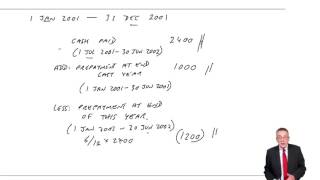 1 JAN 2001 — 31 DEC 2001
CASH PAID 2400 //
(1 JUL 2001 - 30 JUN 2002)
ADD: PREPAYMENT AT END 1000 //
LAST YEAR
(1 JAN 2001 - 30 JUN 2001)
LESS: PREPAYMENT AT END
OF THIS YEAR
(1 JAN 2002 - 30 JUN 2002)
6/12 x 2400 (1200) //